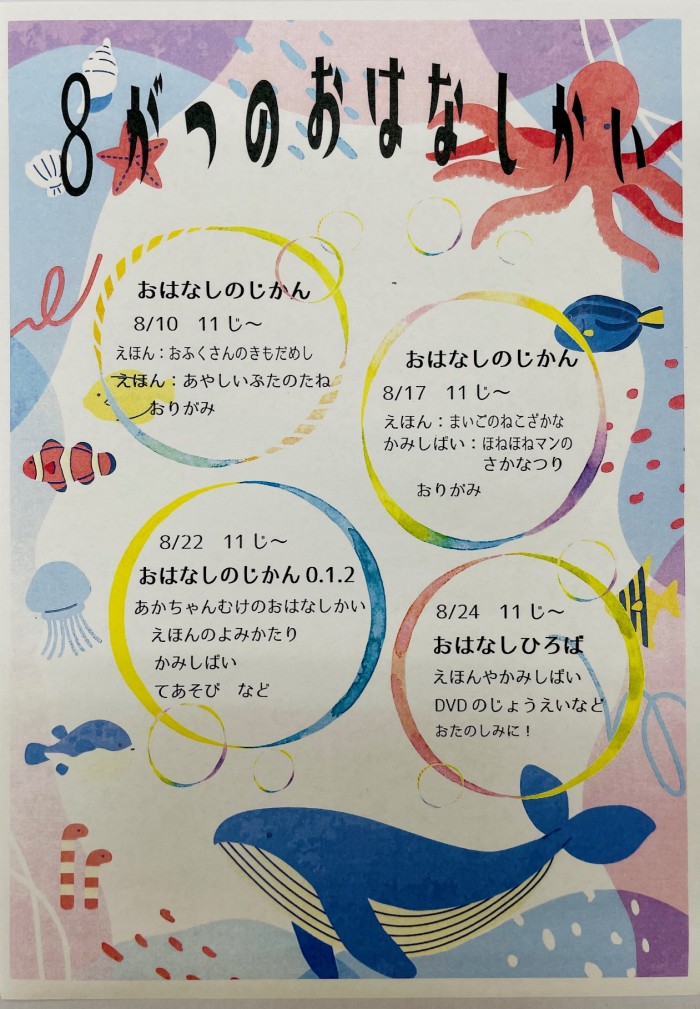 8がつのおはなしかい
おはなしのじかん
8/10　11じ～
えほん：おふくさんのきもだめし
えほん：あやしいぶたのたね
おりがみ
おはなしのじかん
8/17　11じ～
えほん：まいごのねこざかな
かみしばい：ほねほねマンの
さかなつり
おりがみ
8/22　11じ～
おはなしのじかん0.1.2
あかちゃんむけのおはなしかい
えほんのよみかたり
かみしばい
てあそび　など
8/24　11じ～
おはなしひろば
えほんやかみしばい
DVDのじょうえいなど
おたのしみに！